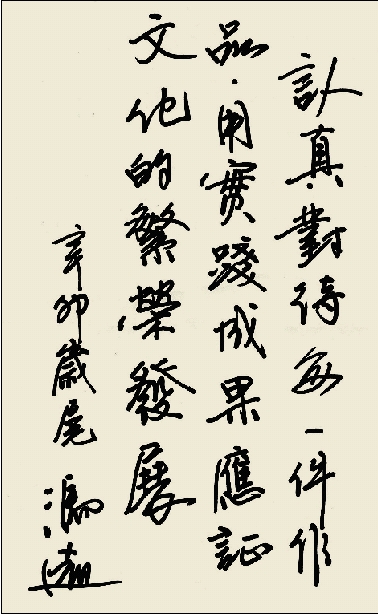 认真對待每一件作
品·用實踐成果應証
文化的繁榮發展
辛卯歲尾 馮遠